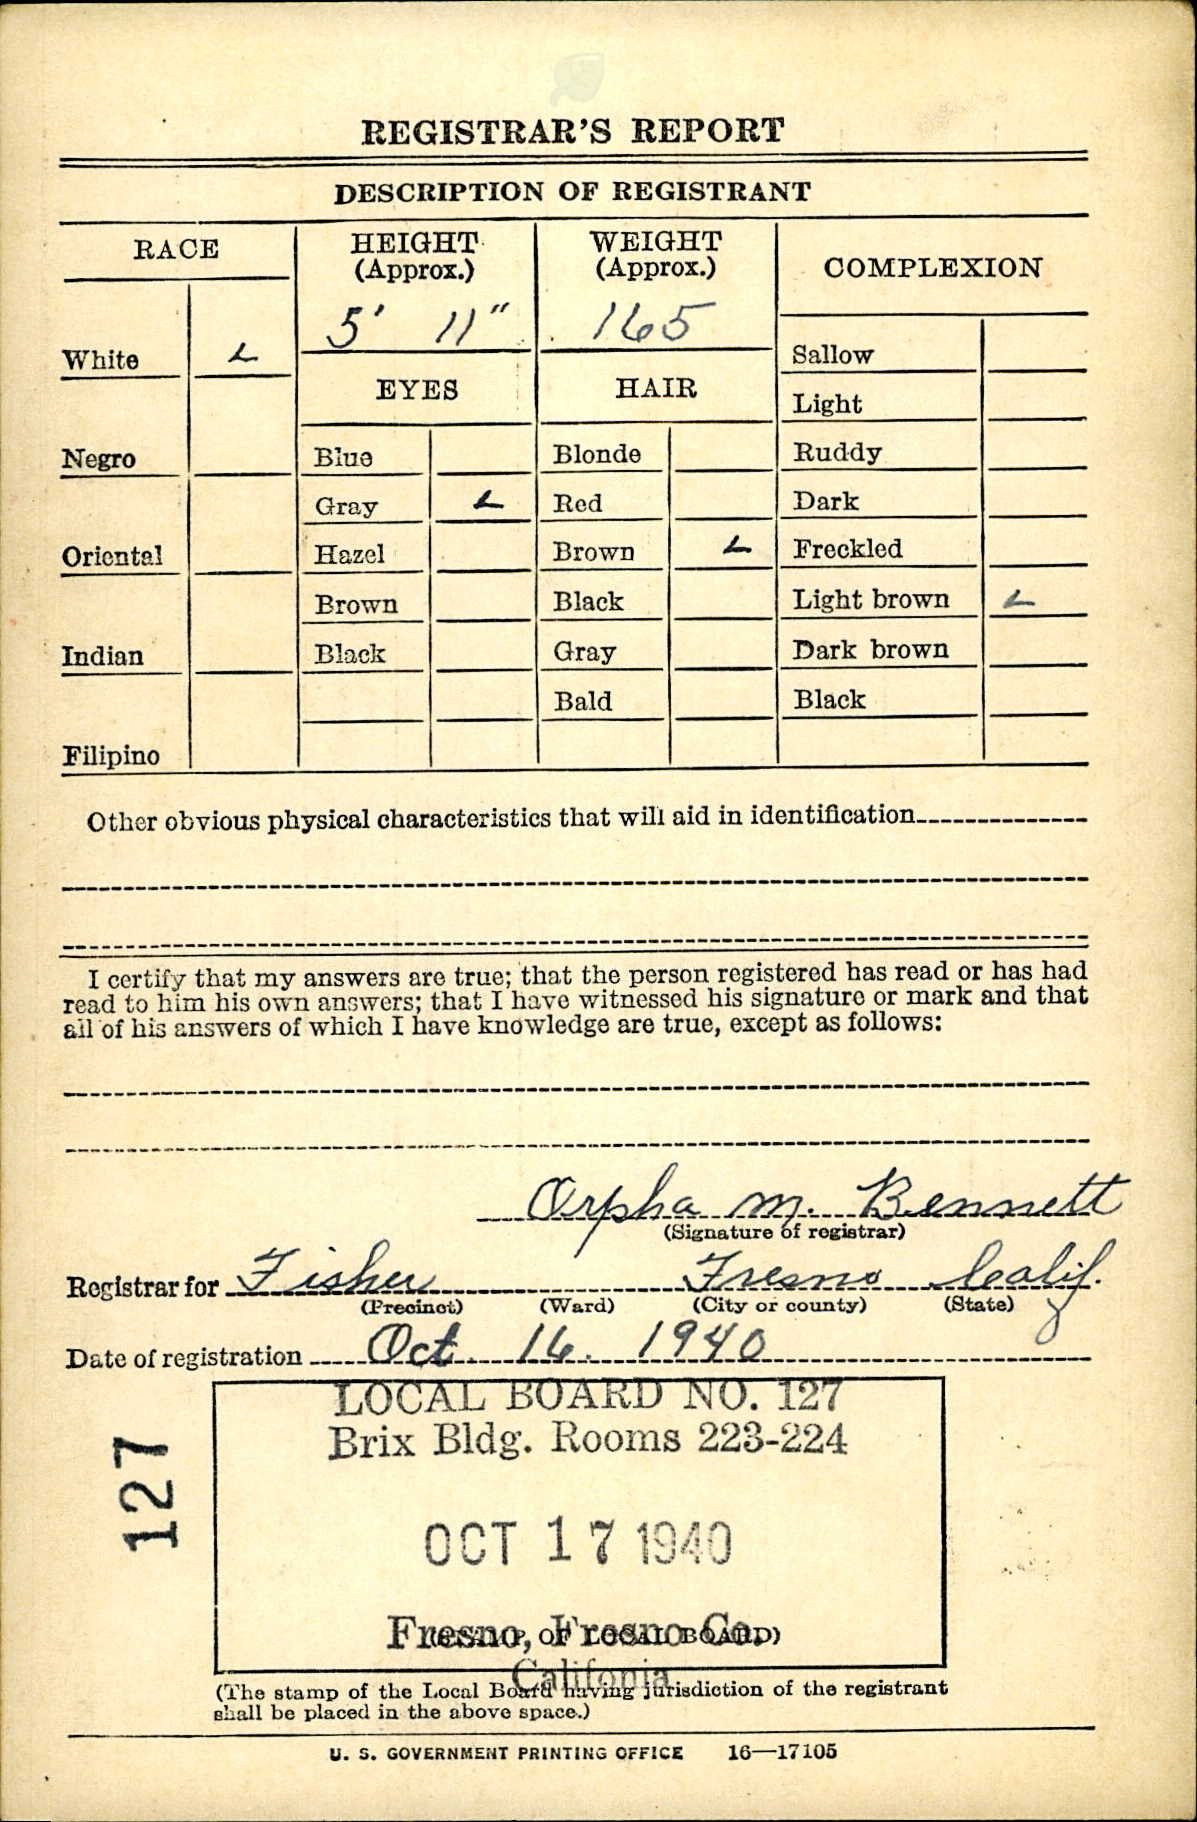 REGISTRAR'S REPORT
DESCRIPTION OF REGISTRANT
RACE
HEIGHT
(Approx.)
WEIGHT
(Approx.)
COMPLEXION
5' 11"
165
White
Sallow
EYES
HAIR
Light
Negro
Blue
Blonde
Ruddy
Gray
Red
Dark
Oriental
Hazel
Brown
Freckled
Brown
Black
Light brown
Indian
Black
Gray
Dark brown
Bald
Black
Filipino
Other obvious physical characteristics that will aid in identification
I certify that my answers are true; that the person registered has read or has had
read to him his own answers; that I have witnessed his signature or mark and that
all of his answers of which I have knowledge are true, except as follows:
Orpha M. Bennett
(Signature of registrar)
Registrar for Fisher Fresno Calif.
(Precinct) (Ward) (City or county) (State)
Date of registration Oct. 16. 1940
LOCAL BOARD NO. 127
Brix Bldg. Rooms 223-224
127
OCT 17 1940
Fresno, Fresno Co.
(STAMP OF LOCAL BOARD)
Califonia
(The stamp of the Local Board having jurisdiction of the registrant
shall be placed in the above space.)
U. S. GOVERNMENT PRINTING OFFICE 16—17105